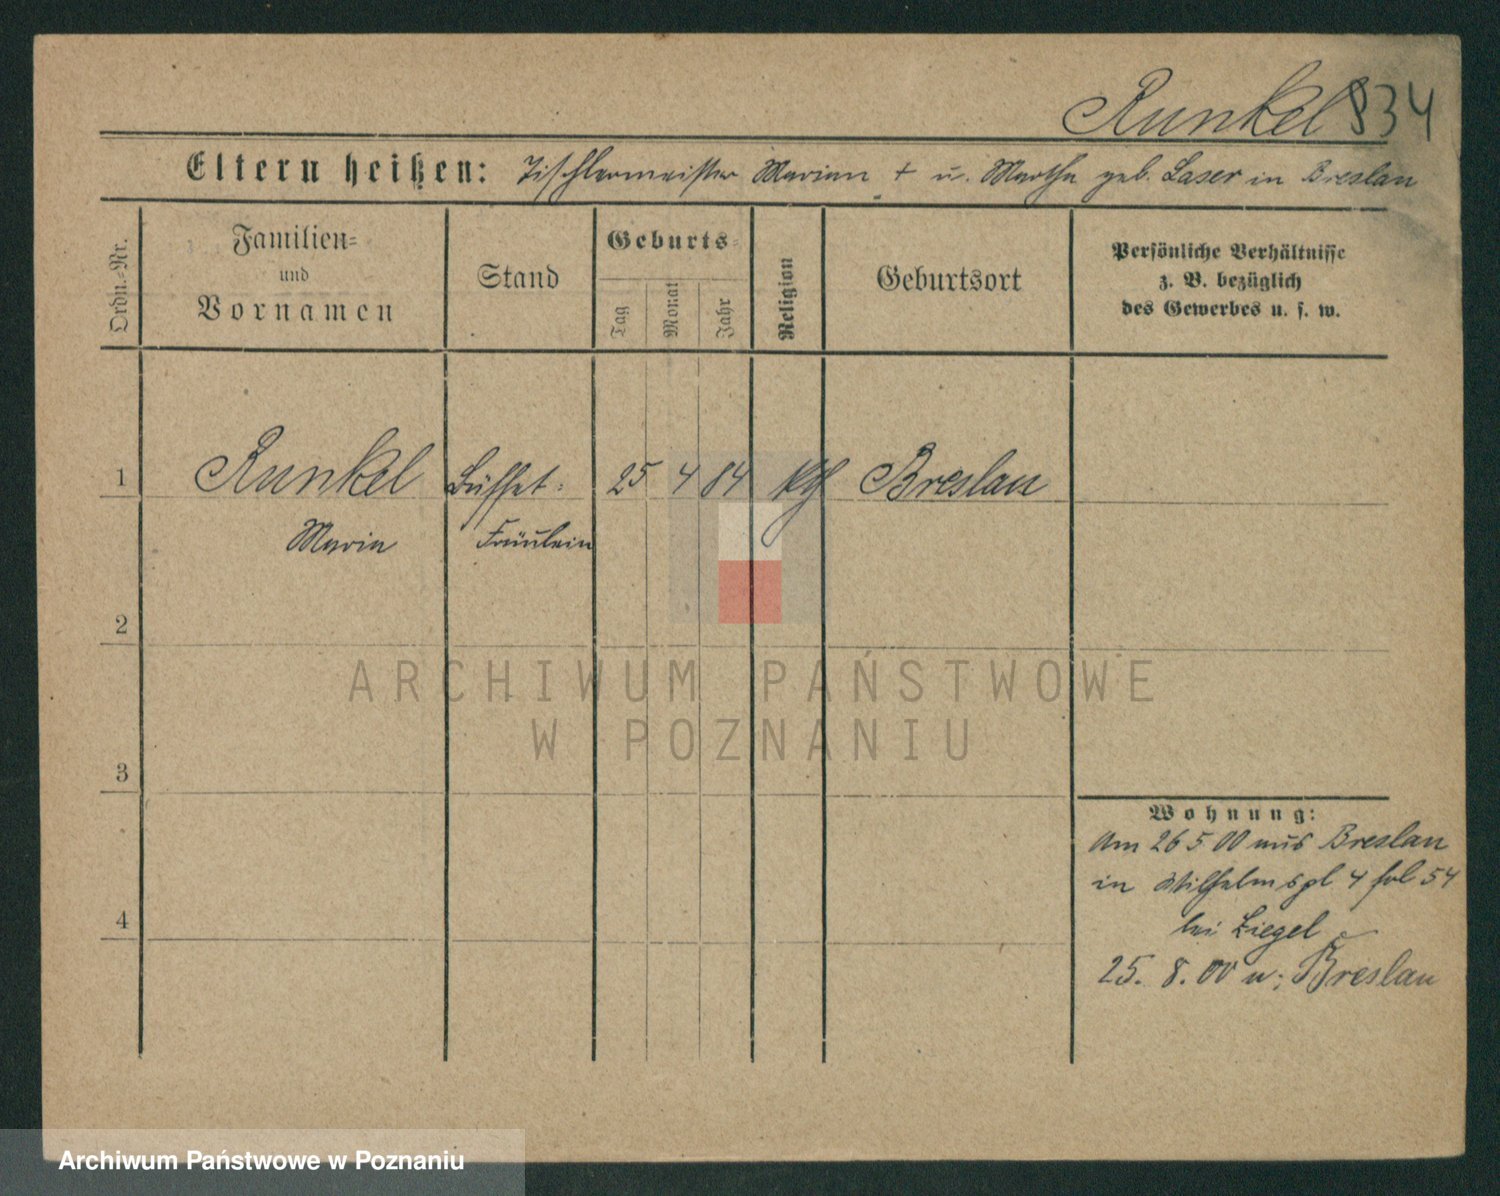 Runkel 834
Eltern heißen: Tischlermeister Marian + u. Martha geb. Laser in Breslau
Ordn.=Nr.
Familien=
und
Vornamen
Stand
Geburts=
Tag
Monat
Jahr
Religion
Geburtsort
Persönliche Verhältnisse
z. B. bezüglich
des Gewerbes u. s. w.
1 Runkel Büffet= 25 4 84 kth Breslau
Maria Fräulein
2
3
4
Wohnung:
Am 26 5 00 aus Breslau
in Wilhelmspl 4 fol 54
bei Ziegel
25. 8. 00 n. Breslau
ARCHIWUM PAŃSTWOWE
W POZNANIU
Archiwum Państwowe w Poznaniu